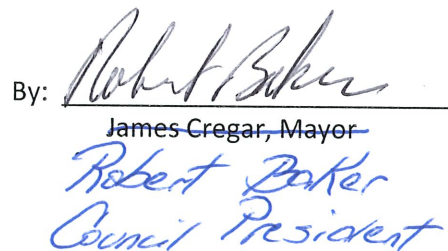 By: Robert Baker
James Cregar, Mayor
Robert Baker
Council President